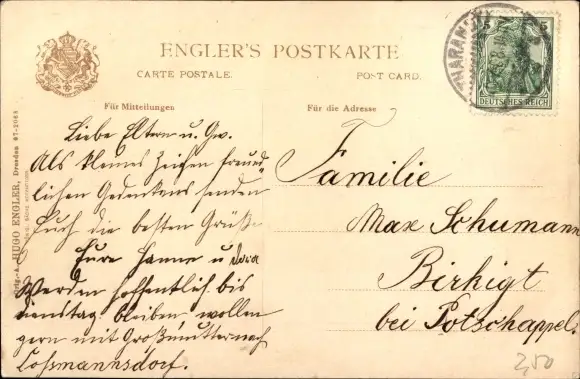 ENGLER'S POSTKARTE
CARTE POSTALE. POST CARD.
Für Mitteilungen
Für die Adresse
THARANDT
5 5
DEUTSCHES REICH
HUGO ENGLER, Dresden 87-2085
Liebe Eltern u. Gw.
Als kleines Zeichen freund-
lichen Gedenkens senden
Euch die besten Grüße
Eure Hanne u Dora
Werden hoffentlich bis
Dienstag bleiben wollen
gern mit Großmutter nach
Coßmannsdorf.
Familie
Max Schumann
Birkigt
bei Potschappel.
2,50